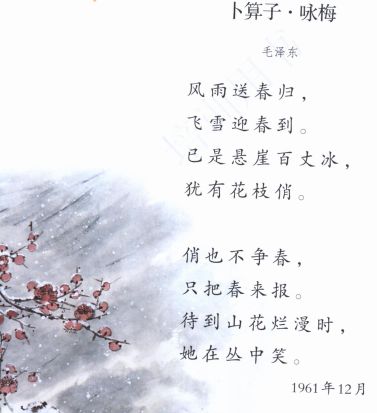 卜算子·咏梅
毛泽东
风雨送春归，
飞雪迎春到。
已是悬崖百丈冰，
犹有花枝俏。
俏也不争春，
只把春来报。
待到山花烂漫时，
她在丛中笑。
1961年12月